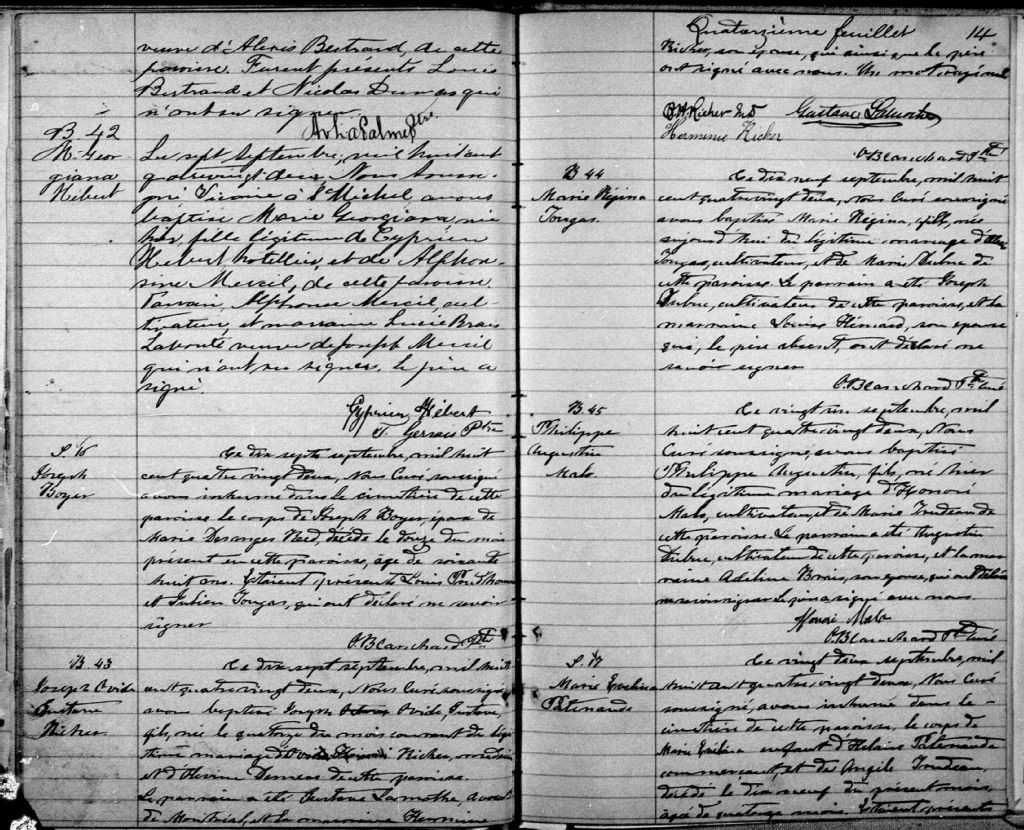 veuve d'Alexis Bertrand, de cette
paroisse. Furent présents Louis
Bertrand et Nicolas Dumas qui
n'ont su signer.
Ptre
B. 42
M. Geor-
giana
Hébert
Le sept septembre, mil huit cent
quatrevingt deux, Nous sous-
gné Vicaire à St Michel, avons
baptisé Marie Georgiana née
hier, fille légitime de Cyprien
Hébert hotellier, et de Alphon-
sine Mercil, de cette paroisse.
Parrain, Alphonse Mercil cul-
tivateur, et marraine Lucie Brais
Labonté veuve de Joseph Mercil
qui n'ont su signer. le père a
signé.
Cyprien Hébert
T. Gervais Ptre
S. 16
Joseph
Boyer
Ce dix sept septembre, mil huit
cent quatre vingt deux, Nous Curé soussigné
avons inhumé dans le cimetière de cette
paroisse le corps de Joseph Boyer, époux de
Marie Desanges Reid, décédé le douze du mois
présent en cette paroisse, âgé de soixante
huit ans. Etaient présents Louis Prud'homme
et Julien Tougas, qui ont déclaré ne savoir
signer
O. Blanchard Ptre
B. 43
Joseph Ovide
Gustave
Richer
Ce dix sept septembre, mil huit
cent quatre vingt deux, Nous Curé soussigné
avons baptisé Joseph Ovide, Gustave,
fils, né le quatorze du mois courant du légi
time mariage d' Richer, médecin
et d' Demers de cette paroisse.
Le parrain a été Gustave Lamothe, avocat
de Montréal, et la marraine Hermine
Quatorzième feuillet 14
Richer, son épouse, qui ainsi que le père
ont signé avec nous. Un mot rayé nul
Richer Md Gustave Lamothe
Herminie Richer
O. Blanchard Ptre
B 44
Marie Régina
Tougas.
Ce dix neuf septembre, mil huit
cent quatre vingt deux, Nous Curé soussigné
avons baptisé Marie Régina, fille, née
aujourd'hui du légitime mariage d'
Tougas, cultivateur, et de Marie Dubuc de
cette paroisse. Le parrain a été Joseph
Dubuc, cultivateur de cette paroisse, et la
marraine Louise Hémard, son épouse
qui, le père absent, ont déclaré ne
savoir signer
O. Blanchard Ptre Curé
B. 45
Philippe
Augustin
Malo.
Ce vingt un septembre, mil
huit cent quatre vingt deux, Nous
Curé soussigné, avons baptisé
Philippe Augustin, fils, né hier
du légitime mariage d'Honoré
Malo, cultivateur, et de Marie Trudeau de
cette paroisse. Le parrain a été Augustin
Dubuc, cultivateur de cette paroisse, et la mar
raine Adéline Brais, son épouse, qui ont déclaré
ne savoir signer. Le père a signé avec nous.
Honoré Malo
O. Blanchard Ptre Curé
S. 17
Marie Evelina
Patenaude
Ce vingt deux septembre, mil
huit cent quatre, vingt deux, Nous Curé
soussigné, avons inhumé dans le
cimetière de cette paroisse, le corps de
Marie Evélina enfant d'Hilaire Patenaude
commerçant, et de Angèle Trudeau.
décédé le dix neuf du présent mois,
âgé de quatorze mois. Etaient présents